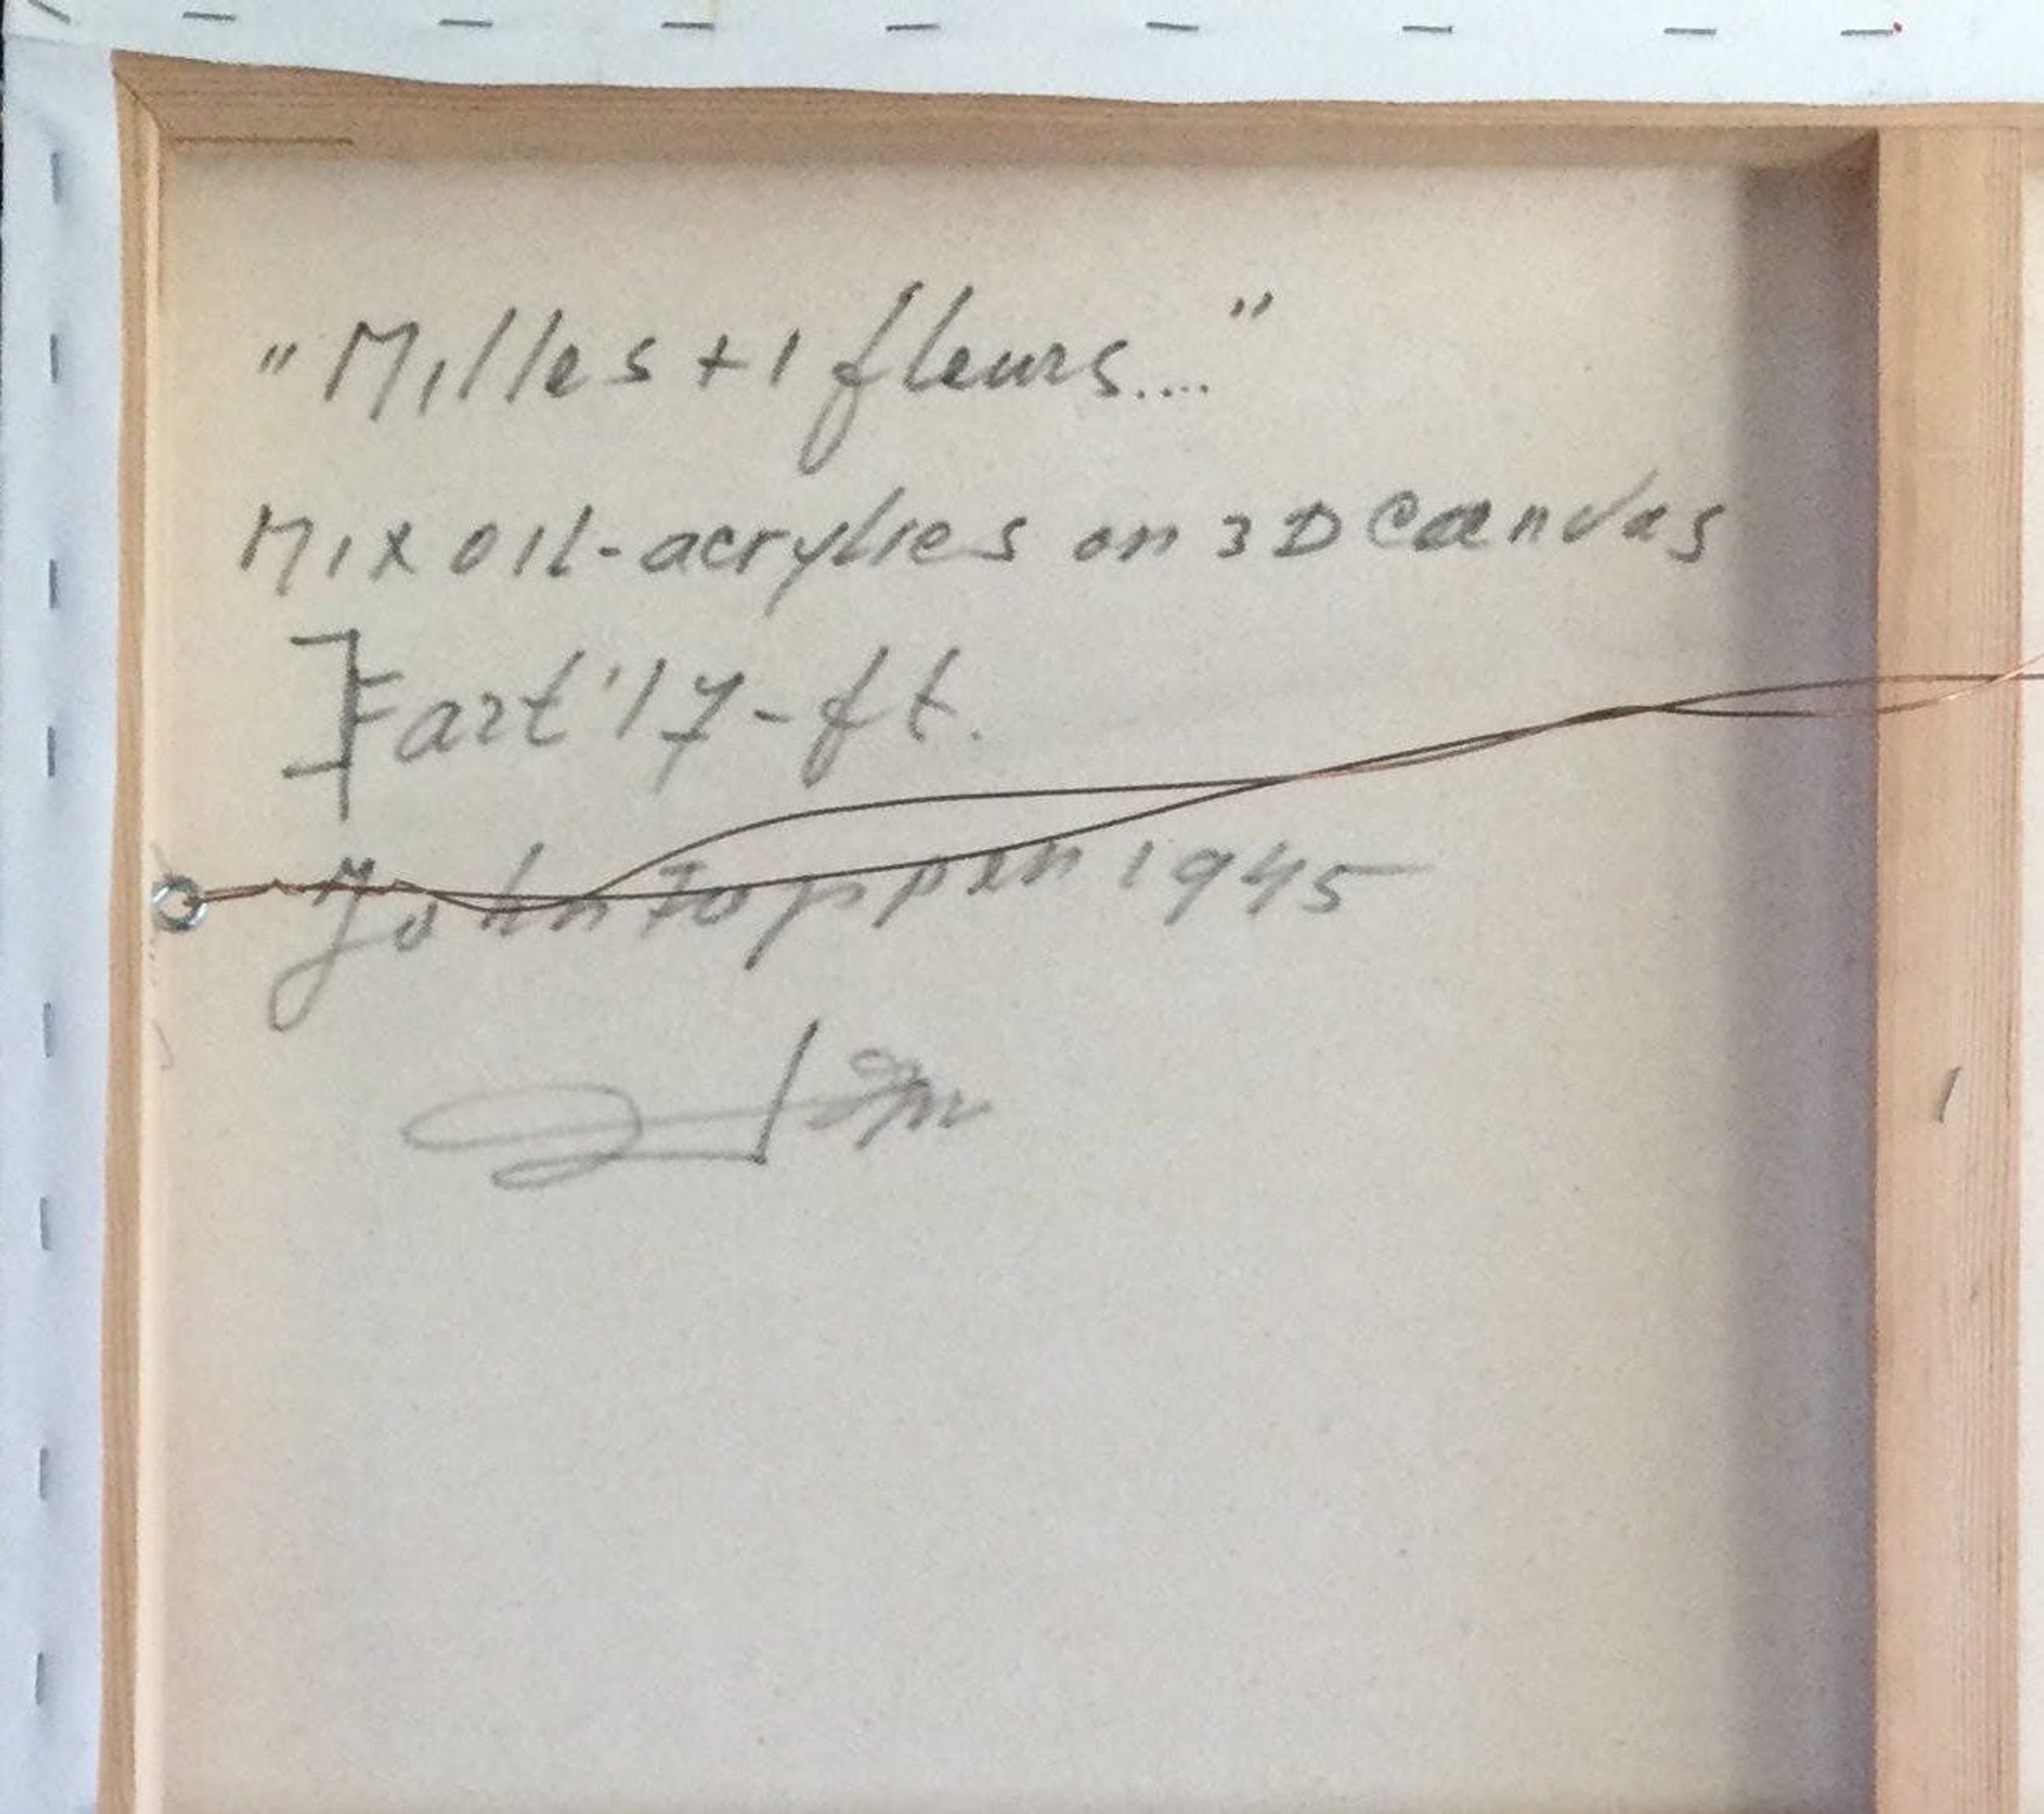 "Milles + 1 fleurs...."
Mix oil-acrylics on 3D Canvas
Fart '17-ft.
John Toppen 1945